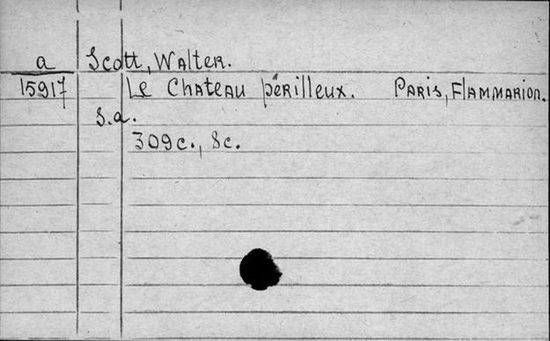 a Scott, Walter.
15917 Le Chateau périlleux. Paris, Flammarion.
S.a.
309c., 8c.